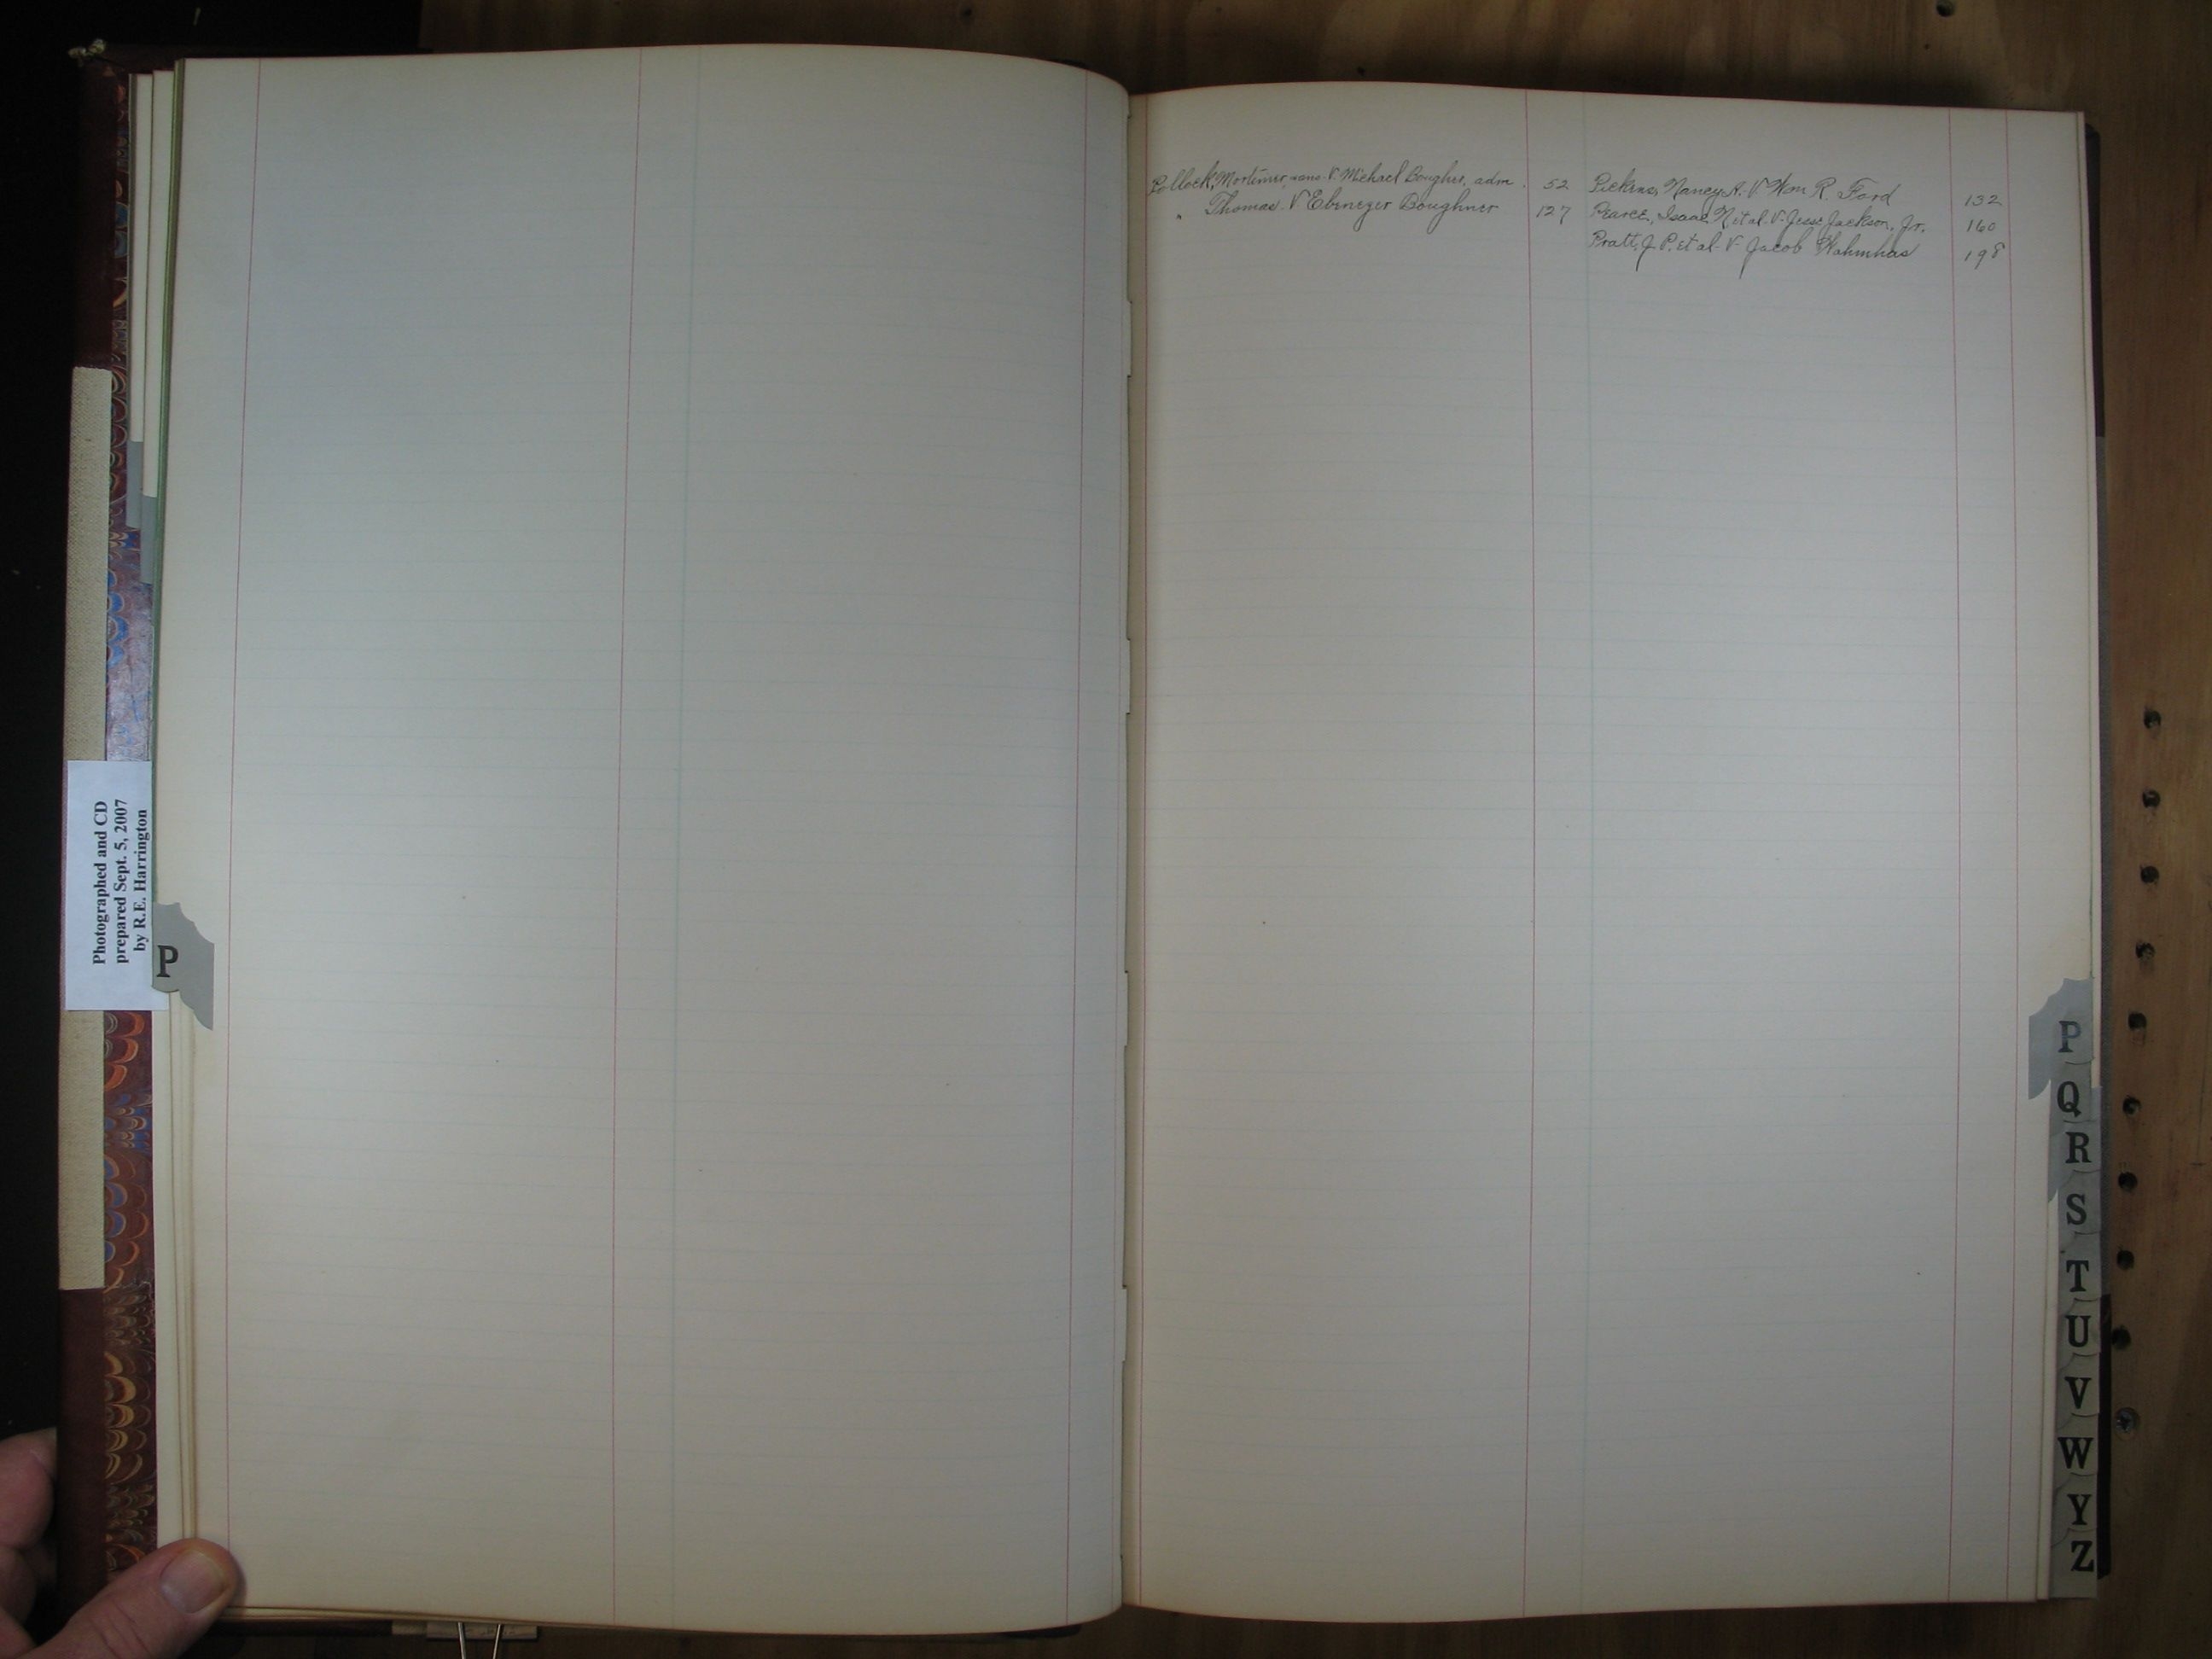 Photographed and CD
prepared Sept. 5, 2007
by R.E. Harrington
P
Pollock, Mortimer, V. Michael Bougher, adm. 52
" Thomas. V Ebenezer Boughner 127
Pickens, Nancy A. V Wm R. Ford 132
Pearce, Isaac N et al. V. Jesse Jackson, Jr. 160
Pratt, J. P. et al - V - Jacob 198
P
Q
R
S
T
U
V
W
Y
Z